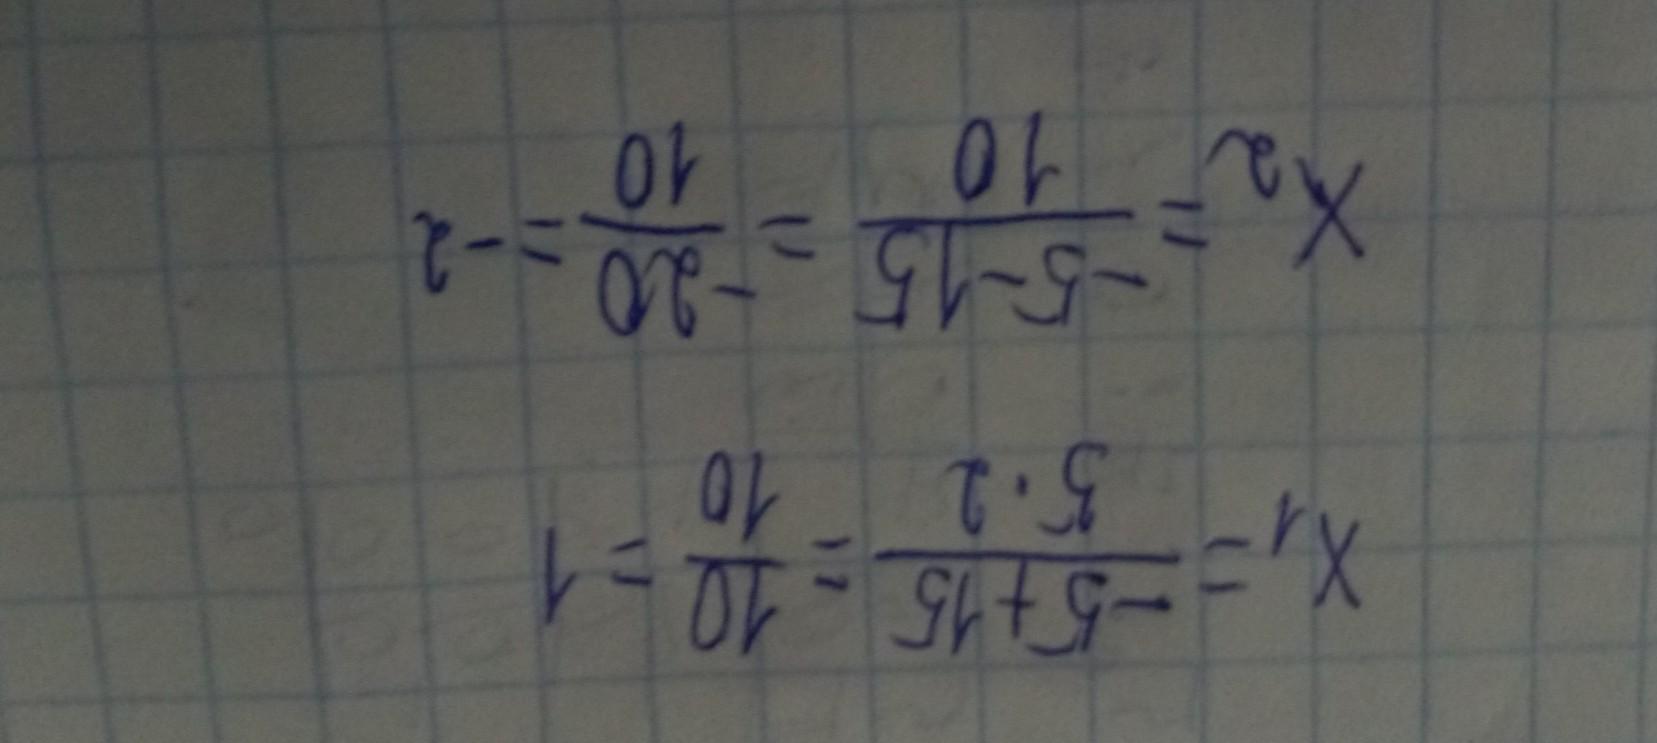 x₁ = (-5+15)/(5·2) = 10/10 = 1
x₂ = (-5-15)/10 = -20/10 = -2